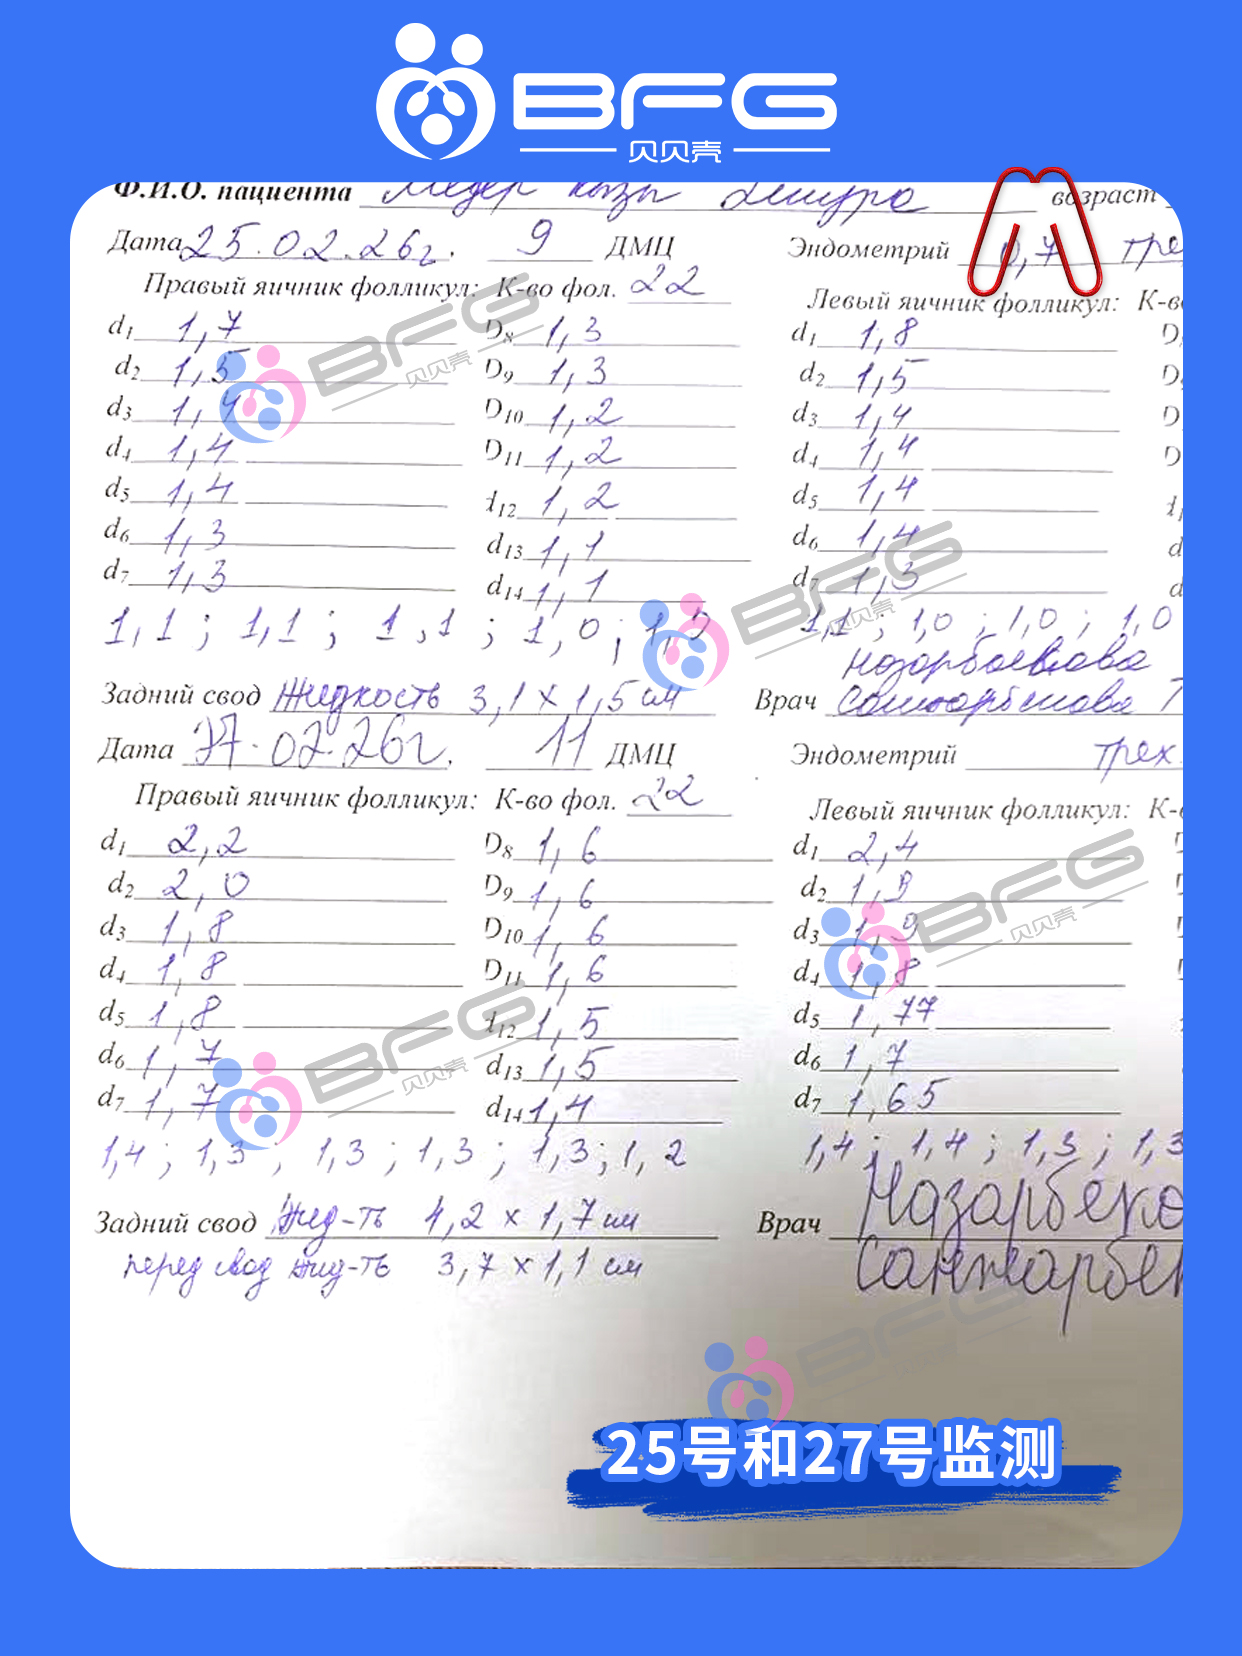 BFG
贝贝壳
Ф.И.О. пациента Медер кызы возраст
Дата 25.02.26г. 9 ДМЦ Эндометрий 0,7 трех
Правый яичник фолликул: К-во фол. 22 Левый яичник фолликул: К-во
d1 1,7 D8 1,3 d1 1,8
d2 1,5 D9 1,3 d2 1,5
d3 1,4 D10 1,2 d3 1,4
d4 1,4 D11 1,2 d4 1,4
d5 1,4 d12 1,2 d5 1,4
d6 1,3 d13 1,1 d6 1,4
d7 1,3 d14 1,1 d7 1,3
1,1 ; 1,1 ; 1,1 ; 1,0 ; 1,1 ; 1,0 ; 1,0 ; 1,0
Задний свод Жидкость 3,1 x 1,5 см Врач
Дата 27.02.26г. 11 ДМЦ Эндометрий трех
Правый яичник фолликул: К-во фол. 22 Левый яичник фолликул: К-
d1 2,2 D8 1,6 d1 2,4
d2 2,0 D9 1,6 d2 1,9
d3 1,8 D10 1,6 d3 1,9
d4 1,8 D11 1,6 d4 1,8
d5 1,8 d12 1,5 d5 1,77
d6 1,7 d13 1,5 d6 1,7
d7 1,7 d14 1,4 d7 1,65
1,4 ; 1,3 ; 1,3 ; 1,3 ; 1,3 ; 1,2 1,4 ; 1,4 ; 1,3 ; 1,3
Задний свод Жид-ть 4,2 x 1,7 см Врач Назарбеко
перед свод жид-ть 3,7 x 1,1 см Санжарбек
25号和27号监测